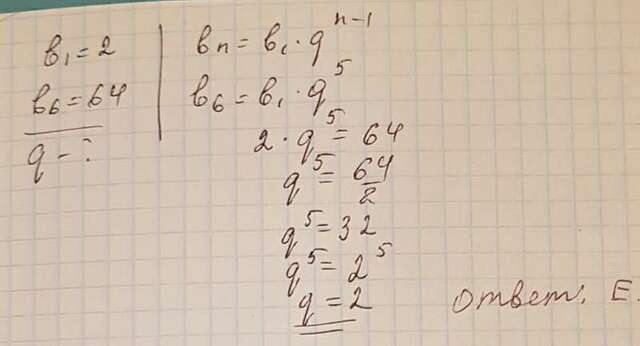 b₁ = 2
b₆ = 64
q - ?
bₙ = b₁ · qⁿ⁻¹
b₆ = b₁ · q⁵
2 · q⁵ = 64
q⁵ = 64/2
q⁵ = 32
q⁵ = 2⁵
q = 2
Ответ: E.